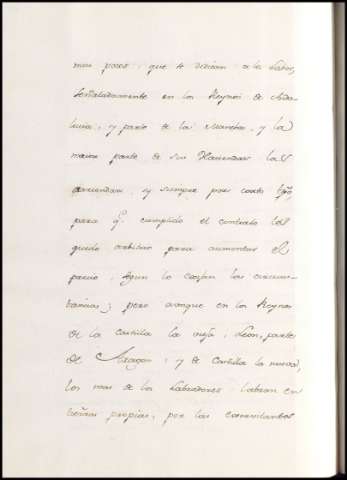 mas pobres, que se dedican a la labor,
señaladamente en los Reynos de Anda-
lucia, y parte de la Mancha, y la
maior parte de sus Haciendas las
arriendan, y siempre por corto tpô,
para q.e cumplido el contrato les
quede arbitrio para aumentar el
precio, segun lo exijan las circuns-
tancias; pero aunque en los Reynos
de la Castilla la vieja, Leon, parte
de Aragon, y de Castilla la nueva,
los mas de los Labradores labran en
tierras propias, por los